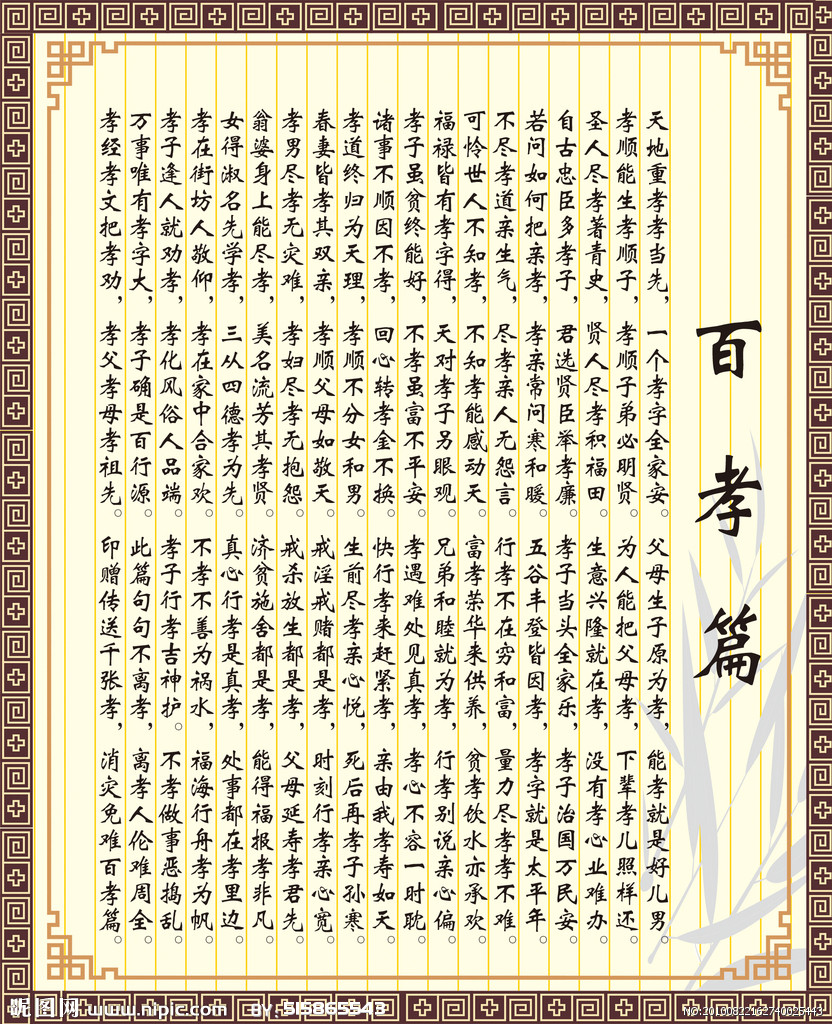 百孝篇
天地重孝孝当先，一个孝字全家安。父母生子原为孝，能孝就是好儿男。
孝顺能生孝顺子，孝顺子弟必明贤。为人能把父母孝，下辈孝儿照样还。
圣人尽孝著青史，贤人尽孝积福田。生意兴隆就在孝，没有孝心业难办。
自古忠臣多孝子，君选贤臣举孝廉。孝子当头全家乐，孝子治国万民安。
若问如何把亲孝，孝亲常问寒和暖。五谷丰登皆因孝，孝字就是太平年。
不尽孝道亲生气，尽孝亲人无怨言。行孝不在穷和富，量力尽孝孝不难。
可怜世人不知孝，不知孝能感动天。富孝荣华来供养，贫孝饮水亦承欢。
福禄皆有孝字得，天对孝子另眼观。兄弟和睦就为孝，行孝别说亲心偏。
孝子虽贫终能好，不孝虽富不平安。孝遇难处见真孝，孝心不容一时耽。
诸事不顺因不孝，回心转孝金不换。快行孝来赶紧孝，亲由我孝寿如天。
孝道终归为天理，孝顺不分女和男。生前尽孝亲心悦，死后再孝子孙寒。
春妻皆孝其双亲，孝顺父母如敬天。戒淫戒赌都是孝，时刻行孝亲心宽。
孝男尽孝无灾难，孝妇尽孝无抱怨。戒杀放生都是孝，父母延寿孝君先。
翁婆身上能尽孝，美名流芳其孝贤。济贫施舍都是孝，能得福报孝非凡。
女得淑名先学孝，三从四德孝为先。真心行孝是真孝，处事都在孝里边。
孝在街坊人敬仰，孝在家中合家欢。不孝不善为祸水，福海行舟孝为帆。
孝子逢人就劝孝，孝化风俗人品端。孝子行孝吉神护。不孝做事恶捣乱。
万事唯有孝字大，孝子确是百行源。此篇句句不离孝，离孝人伦难周全。
孝经孝文把孝劝，孝父孝母孝祖先。印赠传送千张孝，消灾免难百孝篇。
昵图网 www.nipic.com BY:515865543
NO:20100822162740025443